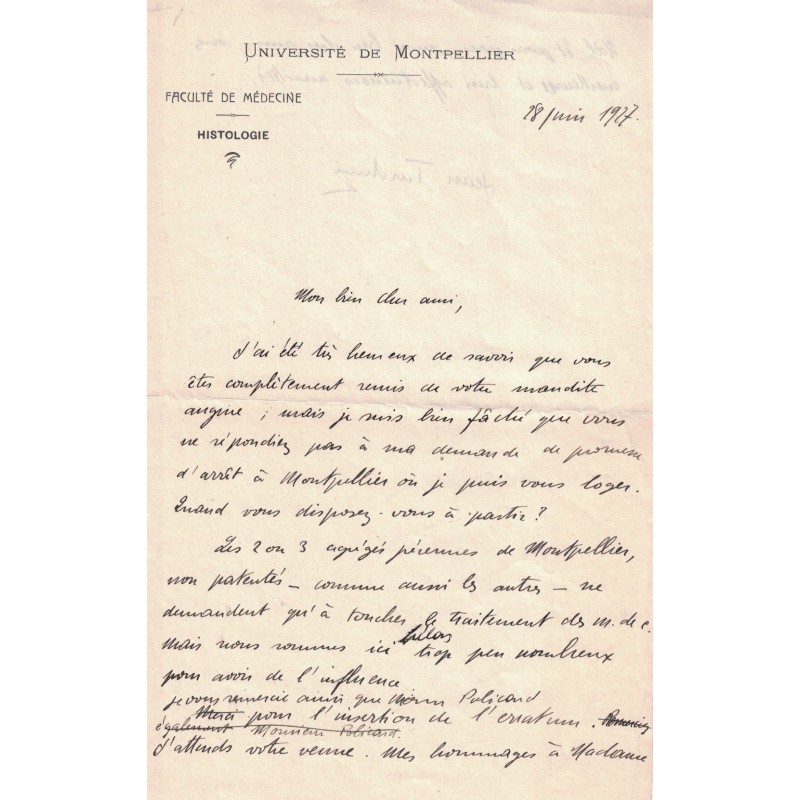 UNIVERSITÉ DE MONTPELLIER
FACULTÉ DE MÉDECINE
HISTOLOGIE
28 juin 1927.
Mon bien cher ami,
J'ai été très heureux de savoir que vous
êtes complètement remis de votre maudite
angine ; mais je suis bien fâché que vous
ne répondiez pas à ma demande de promesse
d'arrêt à Montpellier où je puis vous loger.
Quand vous disposez-vous à partir ?
Les 2 ou 3 agrégés pérennes de Montpellier,
non patentés – comme aussi les autres – ne
demandent qu'à toucher le traitement des m. de c.
Mais nous sommes ici hélas trop peu nombreux
pour avoir de l'influence
je vous remercie ainsi que Policard
Merci pour l'insertion de l'erratum.
également Monsieur Policard.
J'attends votre venue. Mes hommages à Madame
Jean Turchini